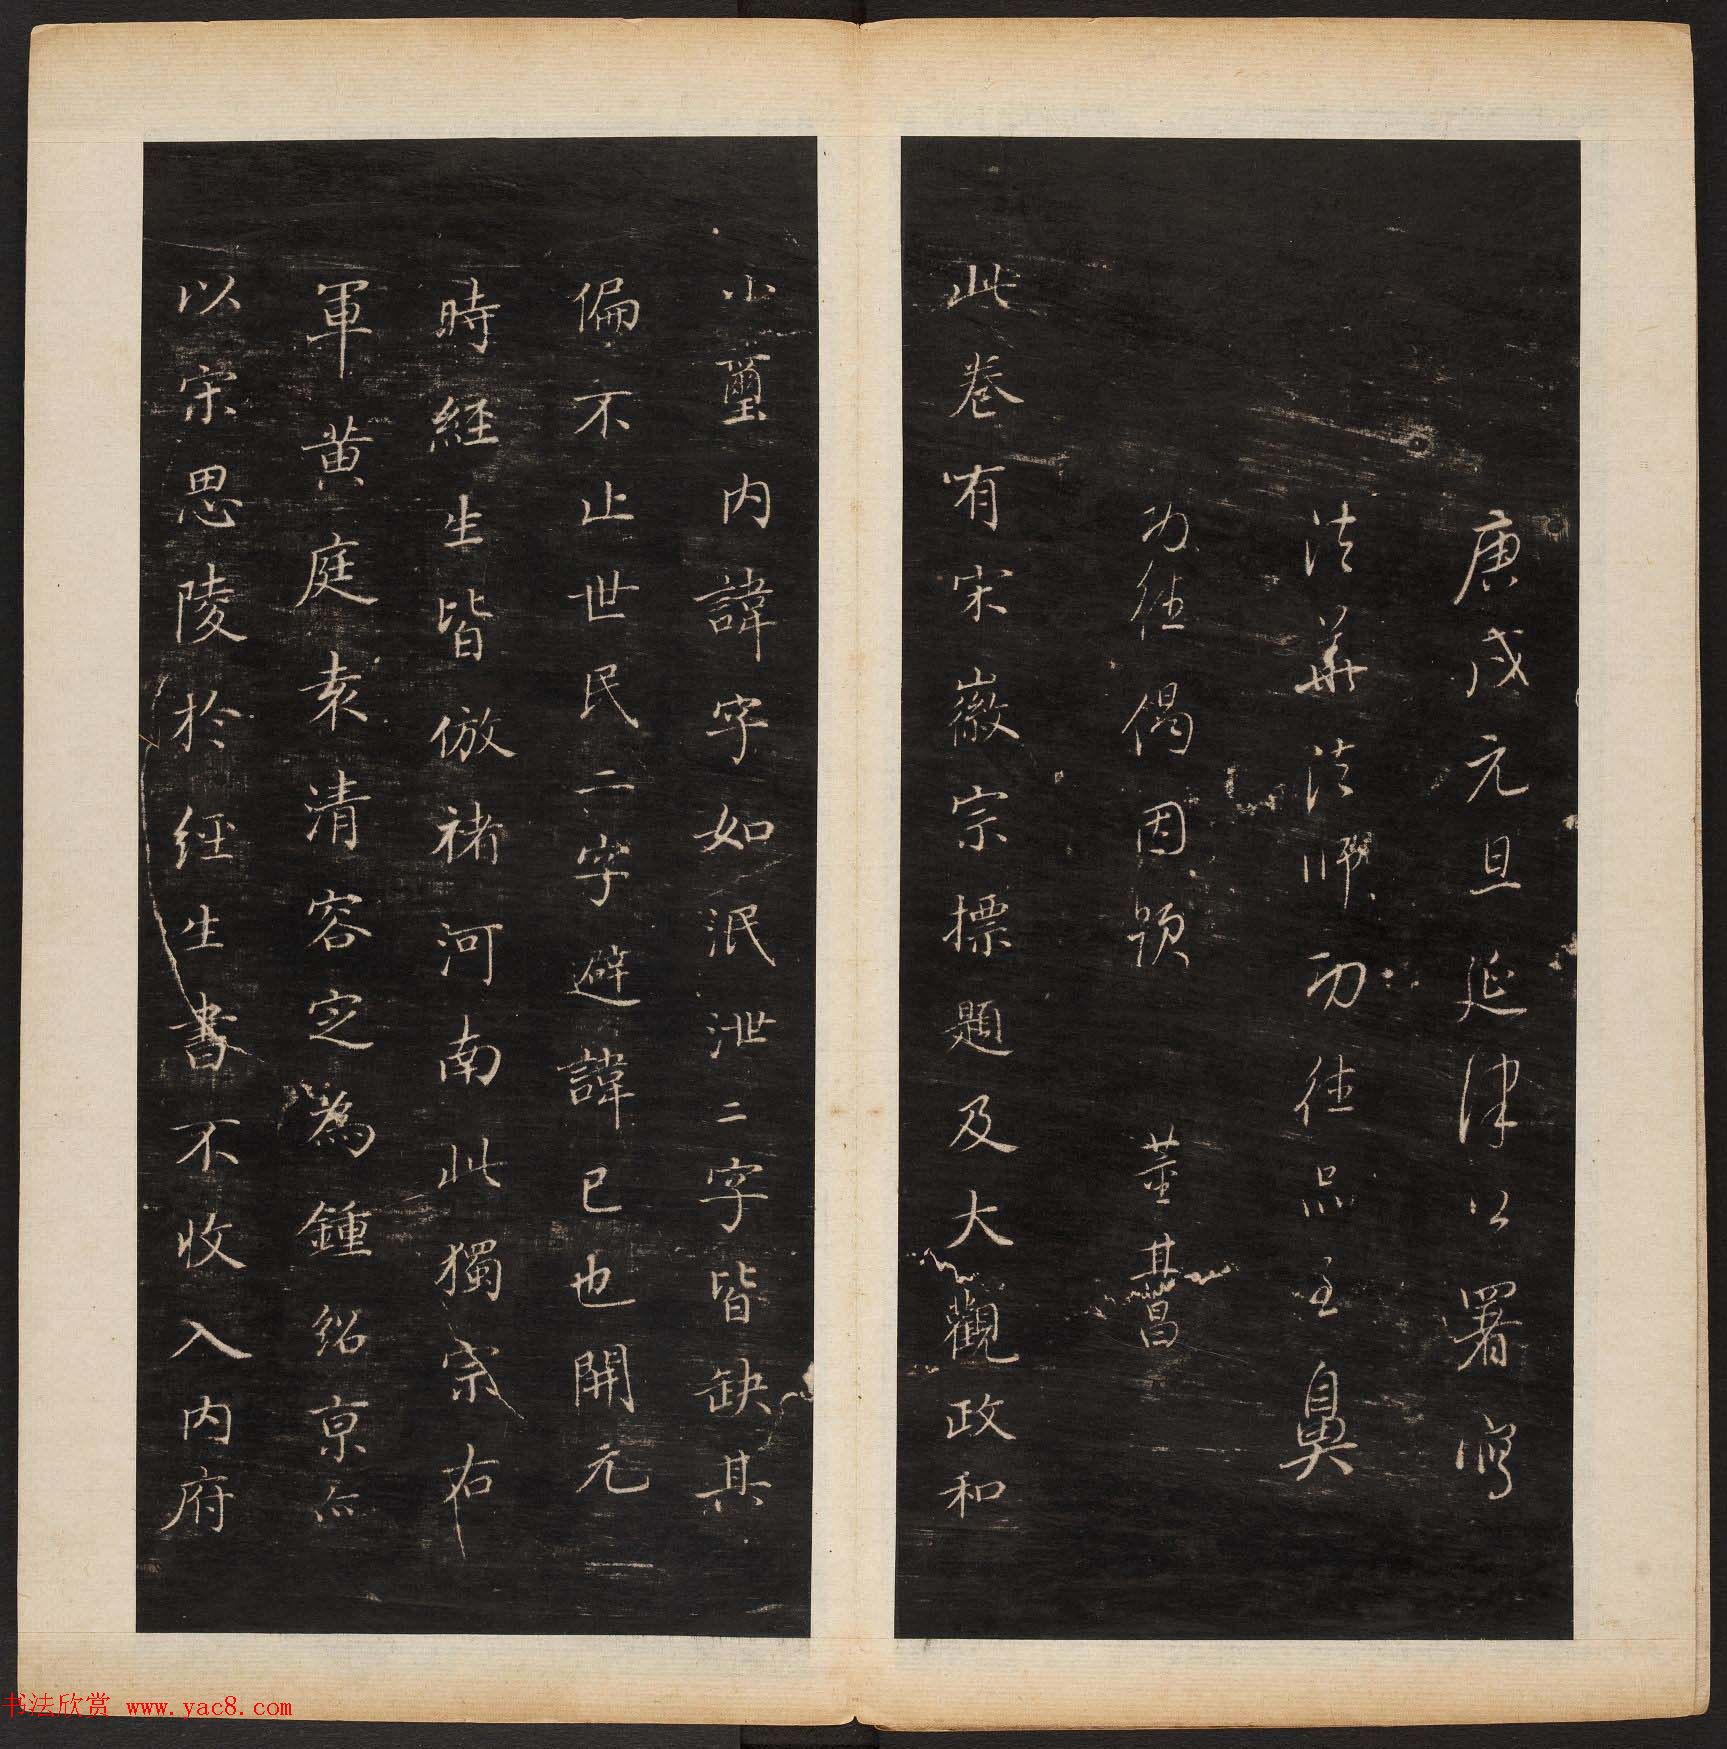 庚戌元旦延津公署寫
法華法師功德品至鼻
功德偈因題 董其昌
此卷有宋徽宗標題及大觀政和
小璽内諱字如泯泄二字皆缺其
偏不止世民二字避諱已也開元
時經生皆倣褚河南此獨宗右
軍黄庭袁清容定為鍾紹京亦
以宋思陵於經生書不收入内府
书法欣赏 www.yac8.com